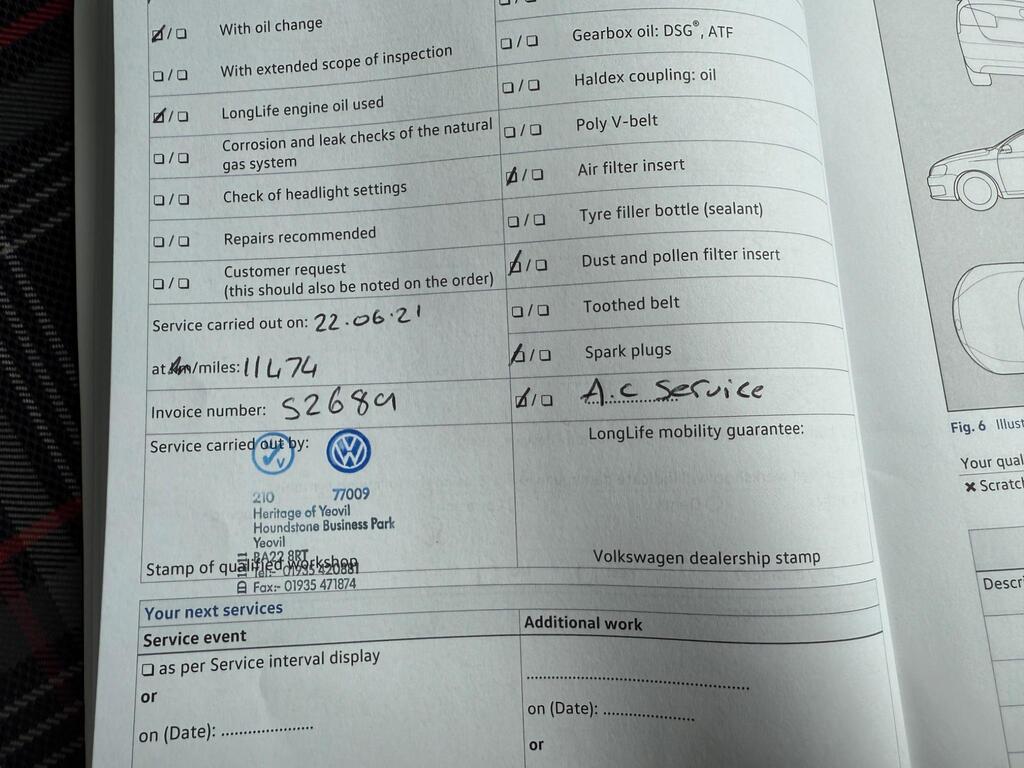 With oil change
With extended scope of inspection
LongLife engine oil used
Corrosion and leak checks of the natural
gas system
Check of headlight settings
Repairs recommended
Customer request
(this should also be noted on the order)
Service carried out on: 22.06.21
at km/miles: 11474
Invoice number: S2689
Service carried out by:
210 77009
Heritage of Yeovil
Houndstone Business Park
Yeovil
BA22 8RT
Stamp of qualified workshop
Tel:- 01935 420881
Fax:- 01935 471874
Gearbox oil: DSG®, ATF
Haldex coupling: oil
Poly V-belt
Air filter insert
Tyre filler bottle (sealant)
Dust and pollen filter insert
Toothed belt
Spark plugs
A.C Service
LongLife mobility guarantee:
Volkswagen dealership stamp
Your next services
Service event
as per Service interval display
or
on (Date): ....................
Additional work
on (Date): ....................
or
Fig. 6 Illust
Your qual
Scratch
Descri